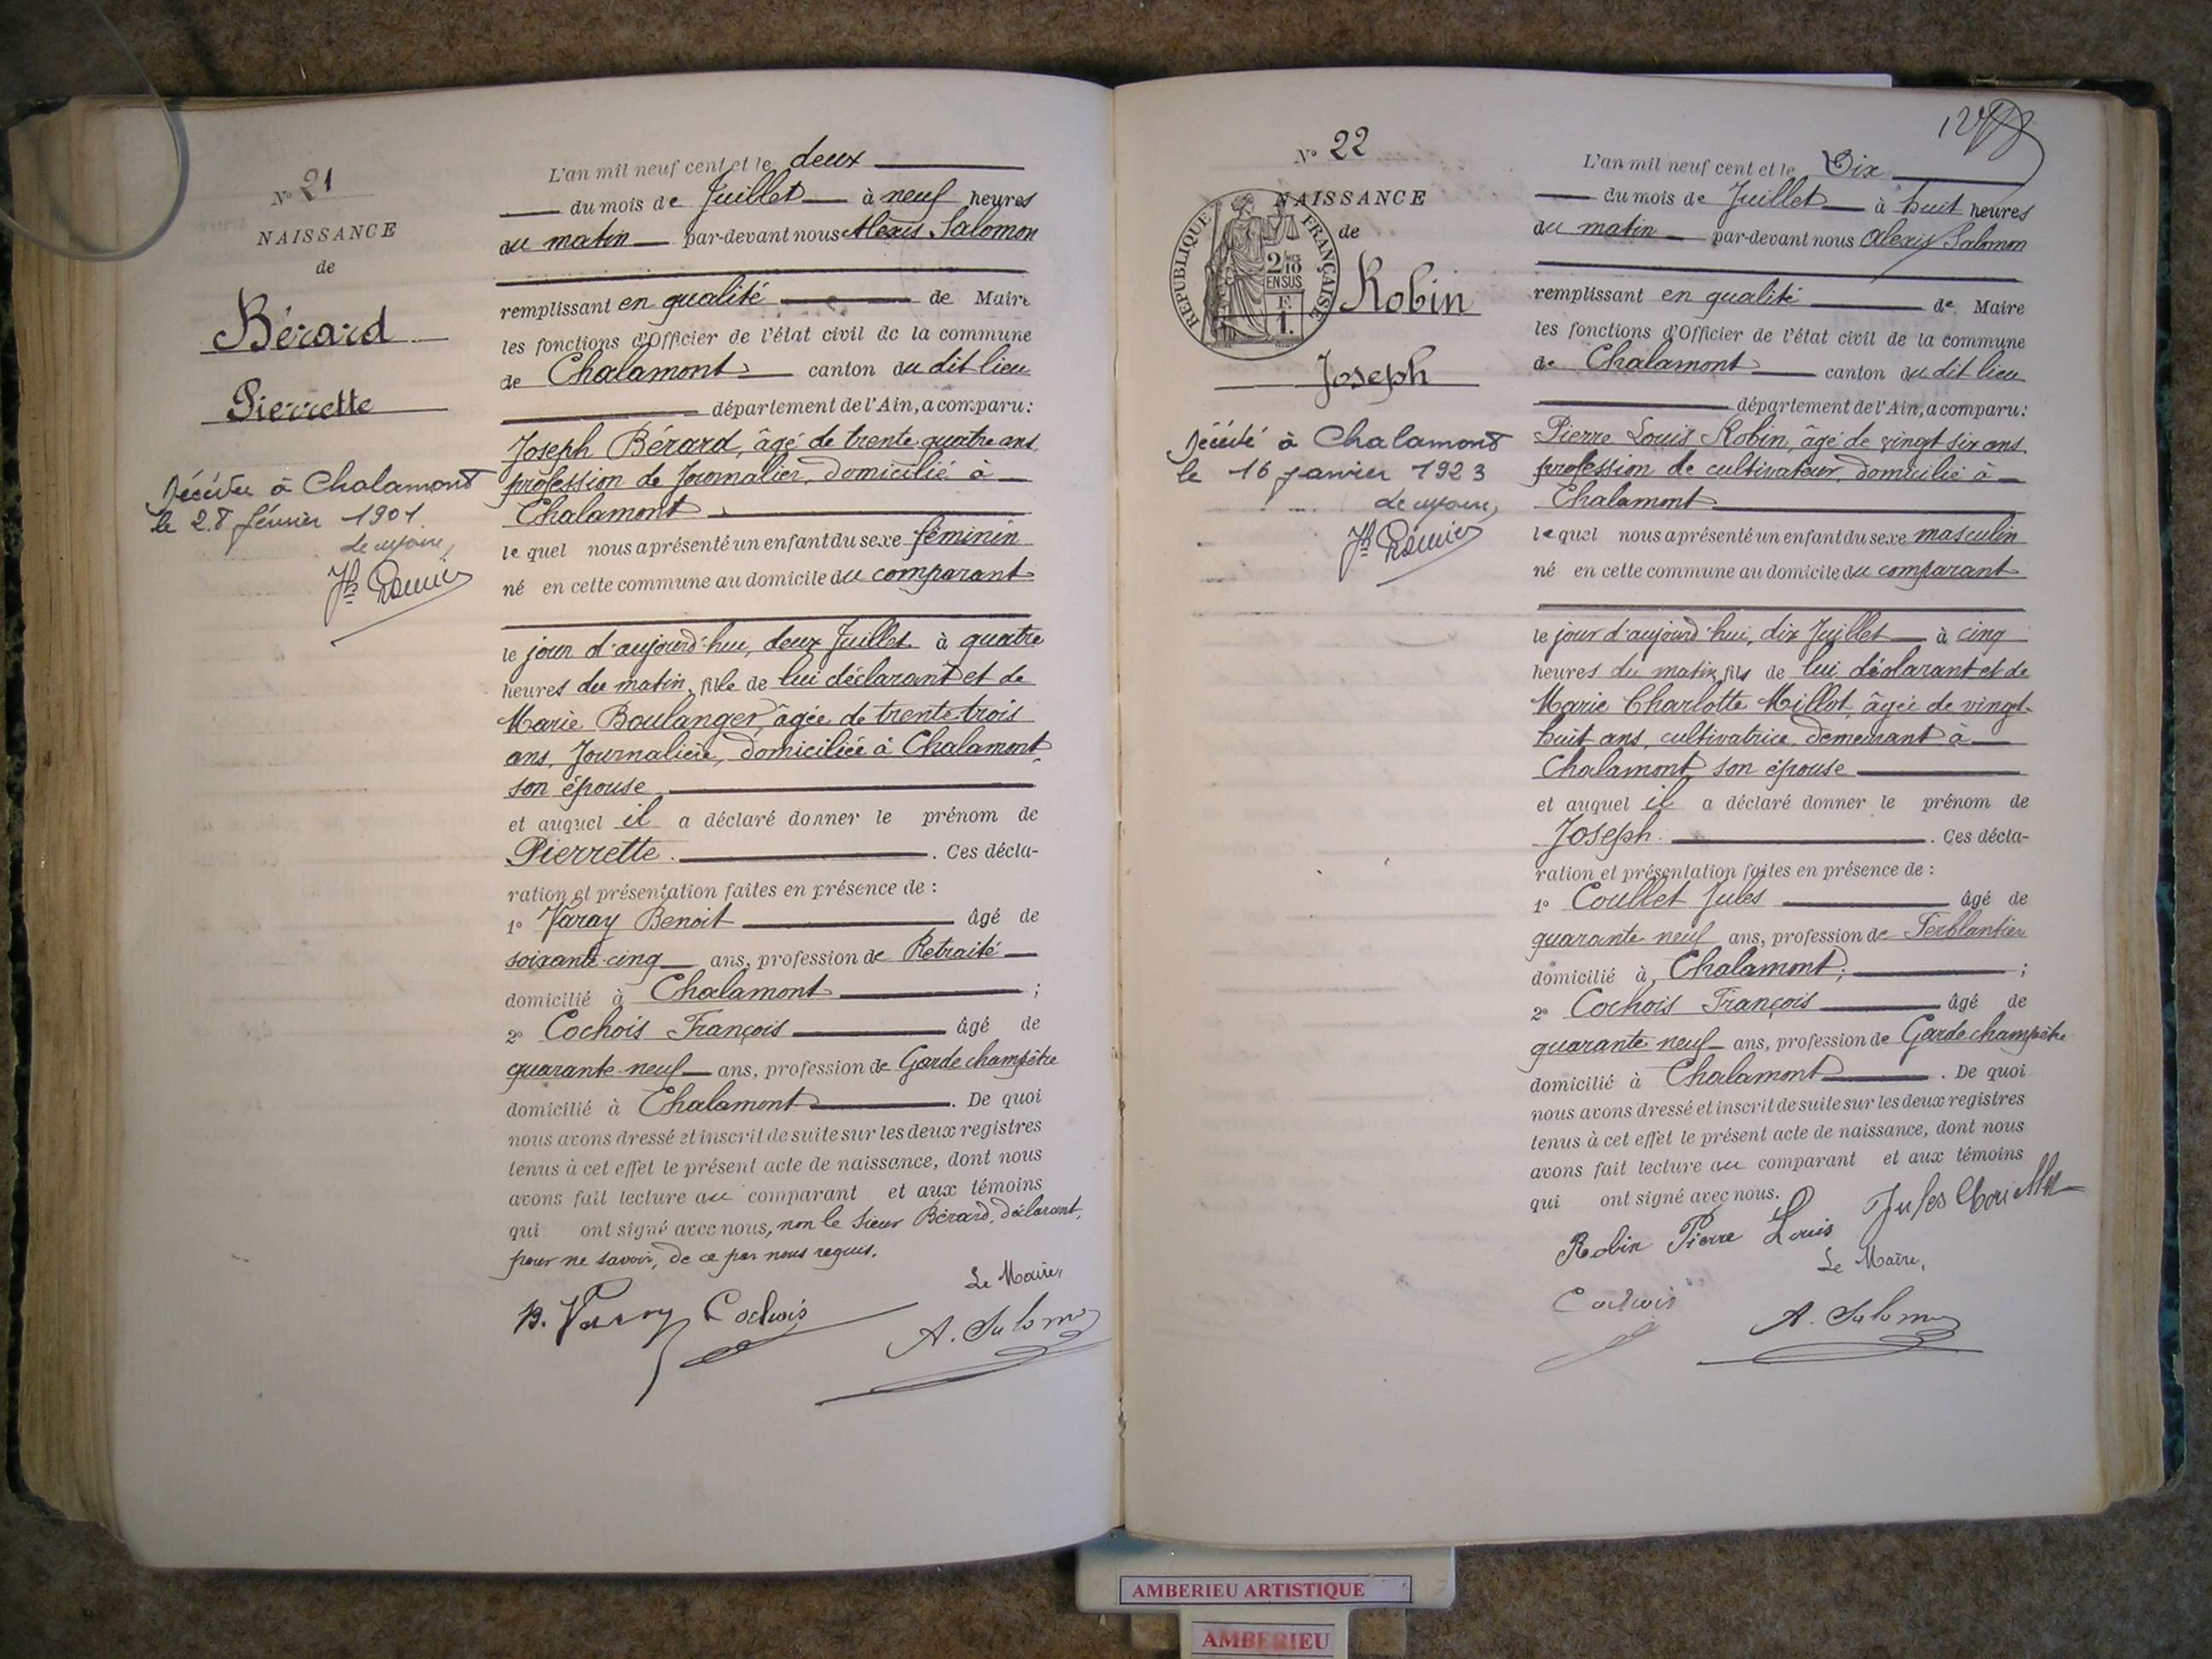 N° 21
NAISSANCE
de
Bérard
Pierrette
Décédée à Chalamont
le 28 février 1901.
L'an mil neuf cent et le deux
du mois de Juillet à neuf heures
du matin par-devant nous Alexis Salomon
remplissant en qualité de Maire
les fonctions d'Officier de l'état civil de la commune
de Chalamont canton du dit lieu
département de l'Ain, a comparu:
Joseph Bérard, âgé de trente quatre ans,
profession de Journalier, domicilié à
Chalamont
lequel nous a présenté un enfant du sexe féminin
né en cette commune au domicile du comparant
le jour d'aujourd'hui, deux Juillet à quatre
heures du matin, fille de lui déclarant et de
Marie Boulanger, âgée de trente trois
ans, Journalière, domiciliée à Chalamont,
son épouse
et auquel il a déclaré donner le prénom de
Pierrette. Ces décla-
ration et présentation faites en présence de :
1° Varay Benoit âgé de
soixante-cinq ans, profession de Retraité
domicilié à Chalamont ;
2° Cochois François âgé de
quarante-neuf ans, profession de Garde champêtre
domicilié à Chalamont. De quoi
nous avons dressé et inscrit de suite sur les deux registres
tenus à cet effet le présent acte de naissance, dont nous
avons fait lecture au comparant et aux témoins
qui ont signé avec nous, non le sieur Bérard, déclarant,
pour ne savoir, de ce par nous requis.
Le Maire,
B. Varay Cochois A. Salomon
N° 22
NAISSANCE
de
RÉPUBLIQUE FRANÇAISE
2/10
EN SUS
F.
1.
Robin
Joseph
Décédé à Chalamont
le 16 janvier 1923
L'an mil neuf cent et le Dix
du mois de Juillet à huit heures
du matin par-devant nous Alexis Salomon
remplissant en qualité de Maire
les fonctions d'Officier de l'état civil de la commune
de Chalamont canton du dit lieu
département de l'Ain, a comparu:
Pierre Louis Robin, âgé de vingt six ans
profession de cultivateur, domicilié à
Chalamont
lequel nous a présenté un enfant du sexe masculin
né en cette commune au domicile du comparant
le jour d'aujourd'hui, dix Juillet à cinq
heures du matin, fils de lui déclarant et de
Marie Charlotte Millot, âgée de vingt-
huit ans, cultivatrice, demeurant à
Chalamont, son épouse
et auquel il a déclaré donner le prénom de
Joseph. Ces décla-
ration et présentation faites en présence de :
1° Coullet Jules âgé de
quarante neuf ans, profession de Ferblantier
domicilié à Chalamont; ;
2° Cochois François âgé de
quarante neuf ans, profession de Garde champêtre
domicilié à Chalamont. De quoi
nous avons dressé et inscrit de suite sur les deux registres
tenus à cet effet le présent acte de naissance, dont nous
avons fait lecture au comparant et aux témoins
qui ont signé avec nous.
Robin Pierre Louis Jules
Le Maire,
Cochois A. Salomon
AMBERIEU ARTISTIQUE
AMBERIEU